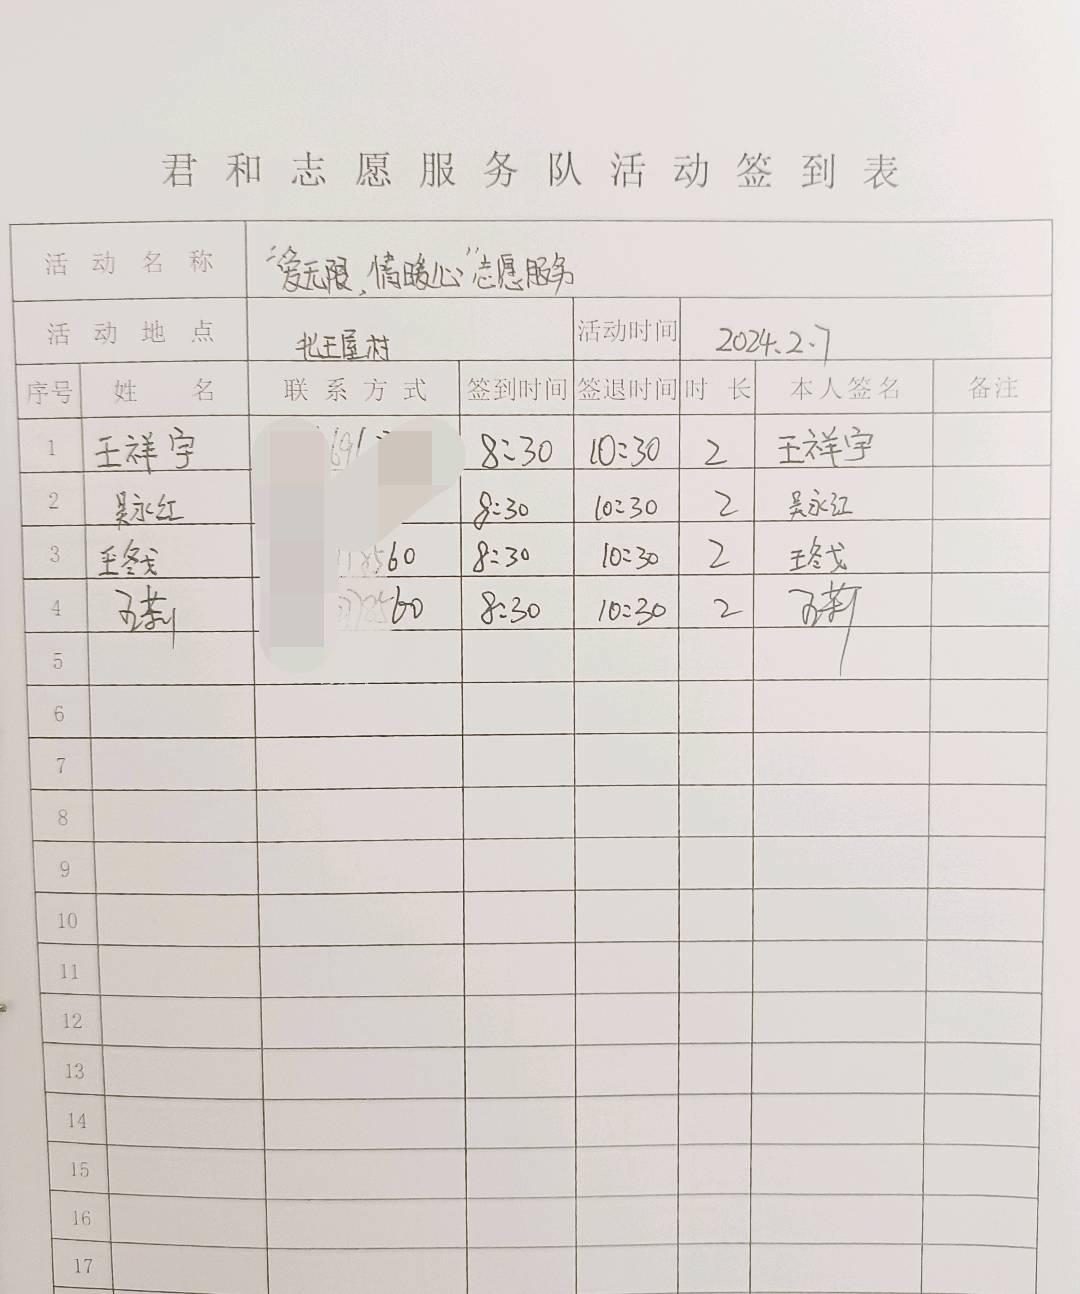 君和志愿服务队活动签到表
活动名称 “爱无限、情暖心”志愿服务
活动地点 北王屋村 活动时间 2024.2.7
序号 姓名 联系方式 签到时间 签退时间 时长 本人签名 备注
1 王祥宇 8:30 10:30 2 王祥宇
2 吴永红 8:30 10:30 2 吴永红
3 王冬戈 60 8:30 10:30 2 王冬戈
4 60 8:30 10:30 2
5
6
7
8
9
10
11
12
13
14
15
16
17